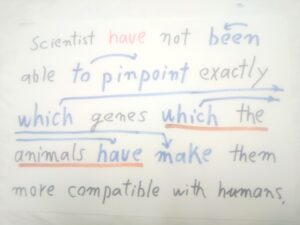 Scientist have not been
able to pinpoint exactly
which genes which the
animals have make them
more compatible with humans.